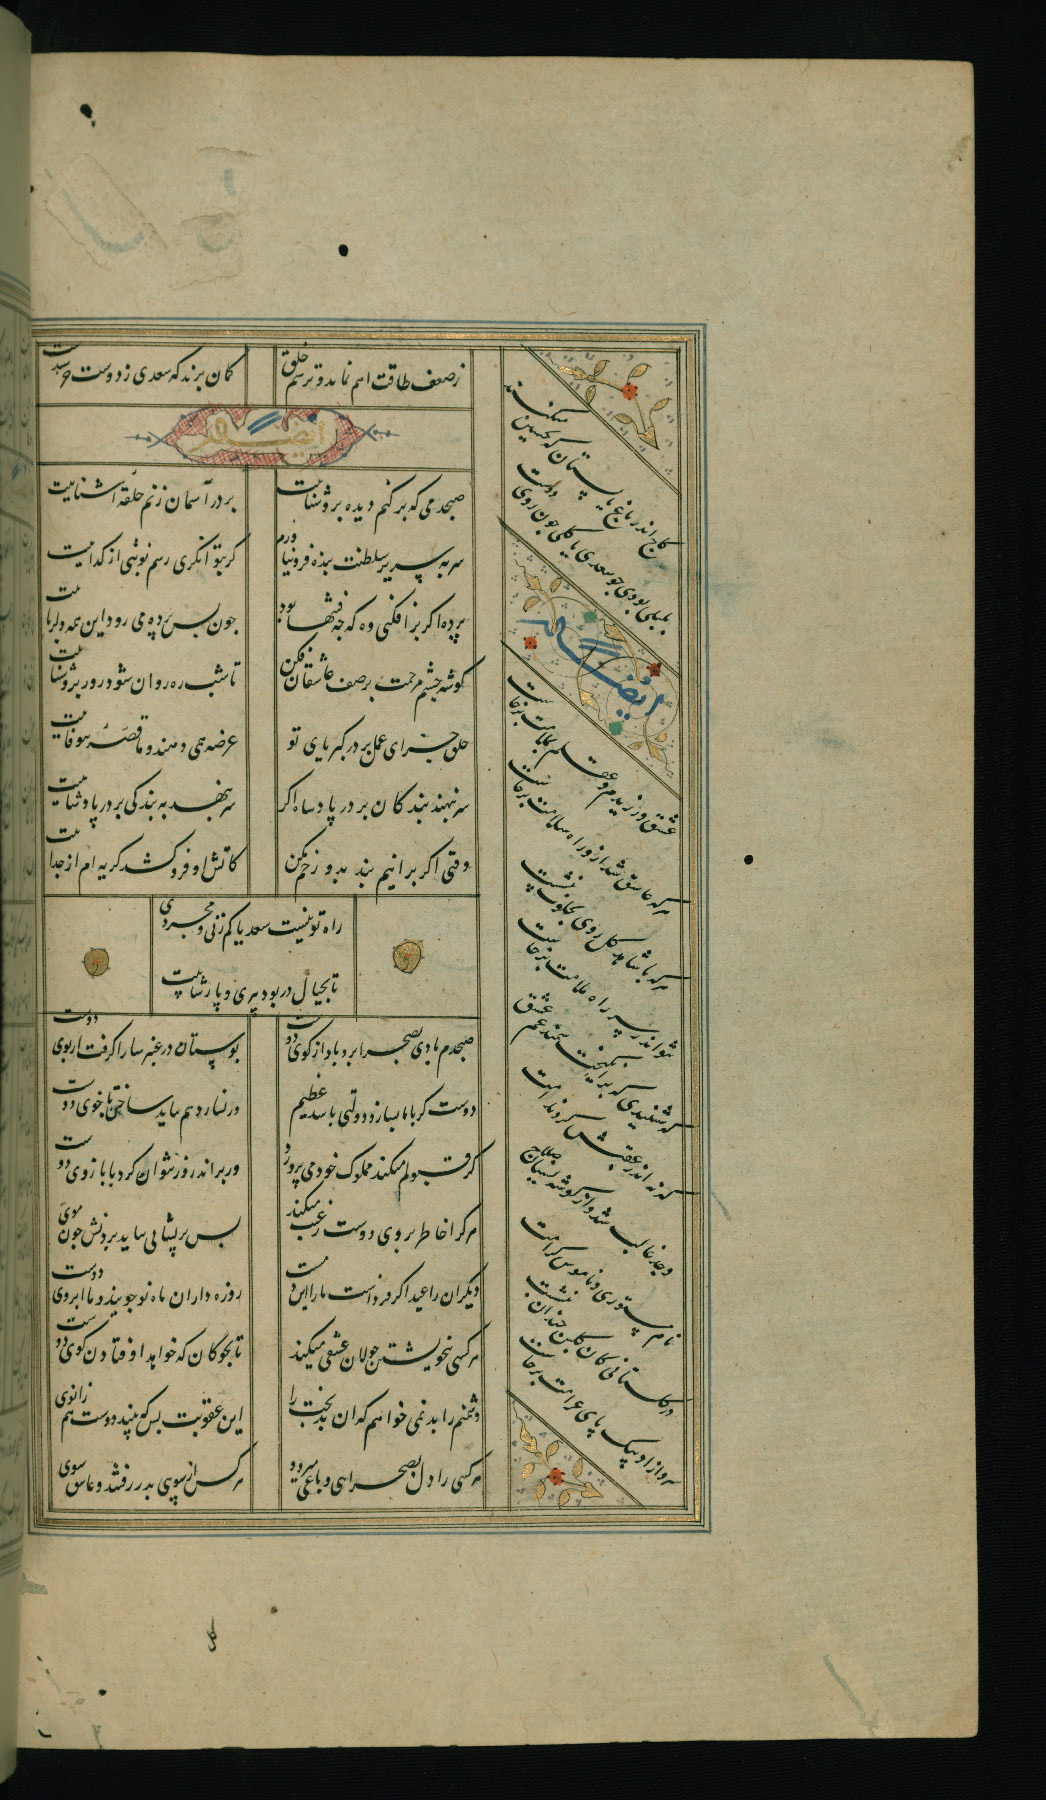 ز ضعف طاقت اهم نماند و ترسم خلق
گمان برند که سعدی ز دوست خرسندست
ایضاً له
صبحدمی که برکنم دیده بروشنائیت
بر در آسمان زنم حلقه آشنائیت
سر به سریر سلطنت بنده فرو نیاورم
گر بتوانگری رسم نوبتی از گدائیت
پرده اگر برافکنی وه که چه فتنها بود
چون پس پرده می رود این همه دلربائیت
گوشه چشم مرحمت بر صف عاشقان فکن
تا شب ره روان شود روز بروشنائیت
خلق جزای عمل بر در کبریای تو
عرضه همی دهند و ما قصه بیوفائیت
سر ننهند بندگان بر در پادشاه اگر
سر بنهد به بندگی بر در پادشائیت
وقتی اگر برانیم بند بدوزخم بکن
کاتش او فرو کشد گریه ام از جدائیت
راه تو نیست سعدیا کم زنی و مجردی
تا بخیال در بود پیری و پارسائیت
صبحدم بادی بصحرا برد باد از کوی دوست
بوستان در عنبر سارا گرفت از بوی دوست
دوست گر با ما بسازد دولتی باشد عظیم
ور نسازد هم بباید ساختن با خوی دوست
گر قبولم میکند مملوک خود می پرورد
ور براند زور نتوان کرد با بازوی دوست
هر کرا خاطر بروی دوست رغبت میکند
بس پریشانی بباید بردنش چون موی دوست
دیگران را عید اگر فرداست ما را این دمست
روزه داران ماه نو جویند و ما ابروی دوست
هر کسی بیخویشتن جولان عشقی میکند
تا بچوگان که خواهد اوفتادن گوی دوست
دشمنم را بد نمی خواهم که آن بدبخت را
این عقوبت بس که بیند دوست هم زانوی دوست
هر کسی را دل بصحرایی و باغی میرود
هر کس از سویی بدر رفتند و عاشق سوی
کاج اندر باغ یا بستان که تحسین میکنند
بلبلی بودی چو سعدی یا گلی چون روی دوست
ایضاً له
عشق ورزیدم و عقلم بملامت برخاست
هر که عاشق شد ازو راه سلامت برخاست
هر که با شاهد گل روی بخلوت بنشست
نتواند ز سر راه ملامت برخاست
که شنیدی که برانگیخت سمند غم عشق
که نه اندر عقبش گرد ندامت
عشق غالب شد و از گوشه نشینان صلاح
نام مستوری و ناموس کرامت
در گلستانی کان گلبن خندان بنشست
سرو آزاد بیک پای غرامت برخاست